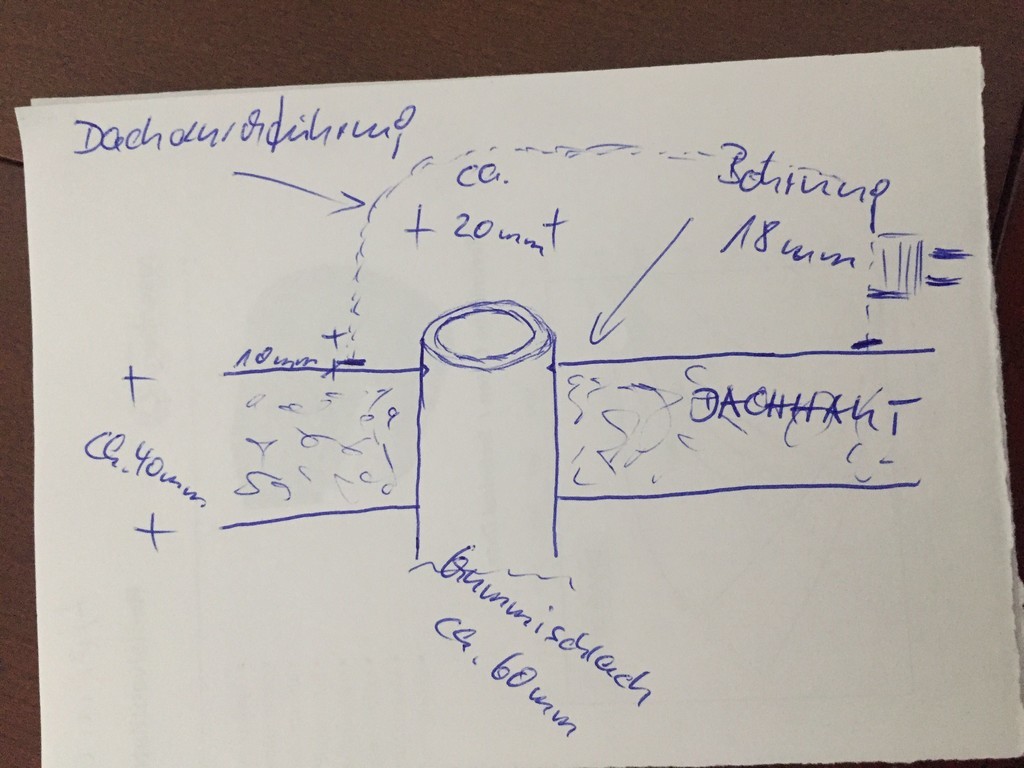 Dachdurchführung
ca.
20mm
Bohrung
18mm
10mm
DACHHAUT
ca. 40mm
Gummischlauch
ca. 60mm